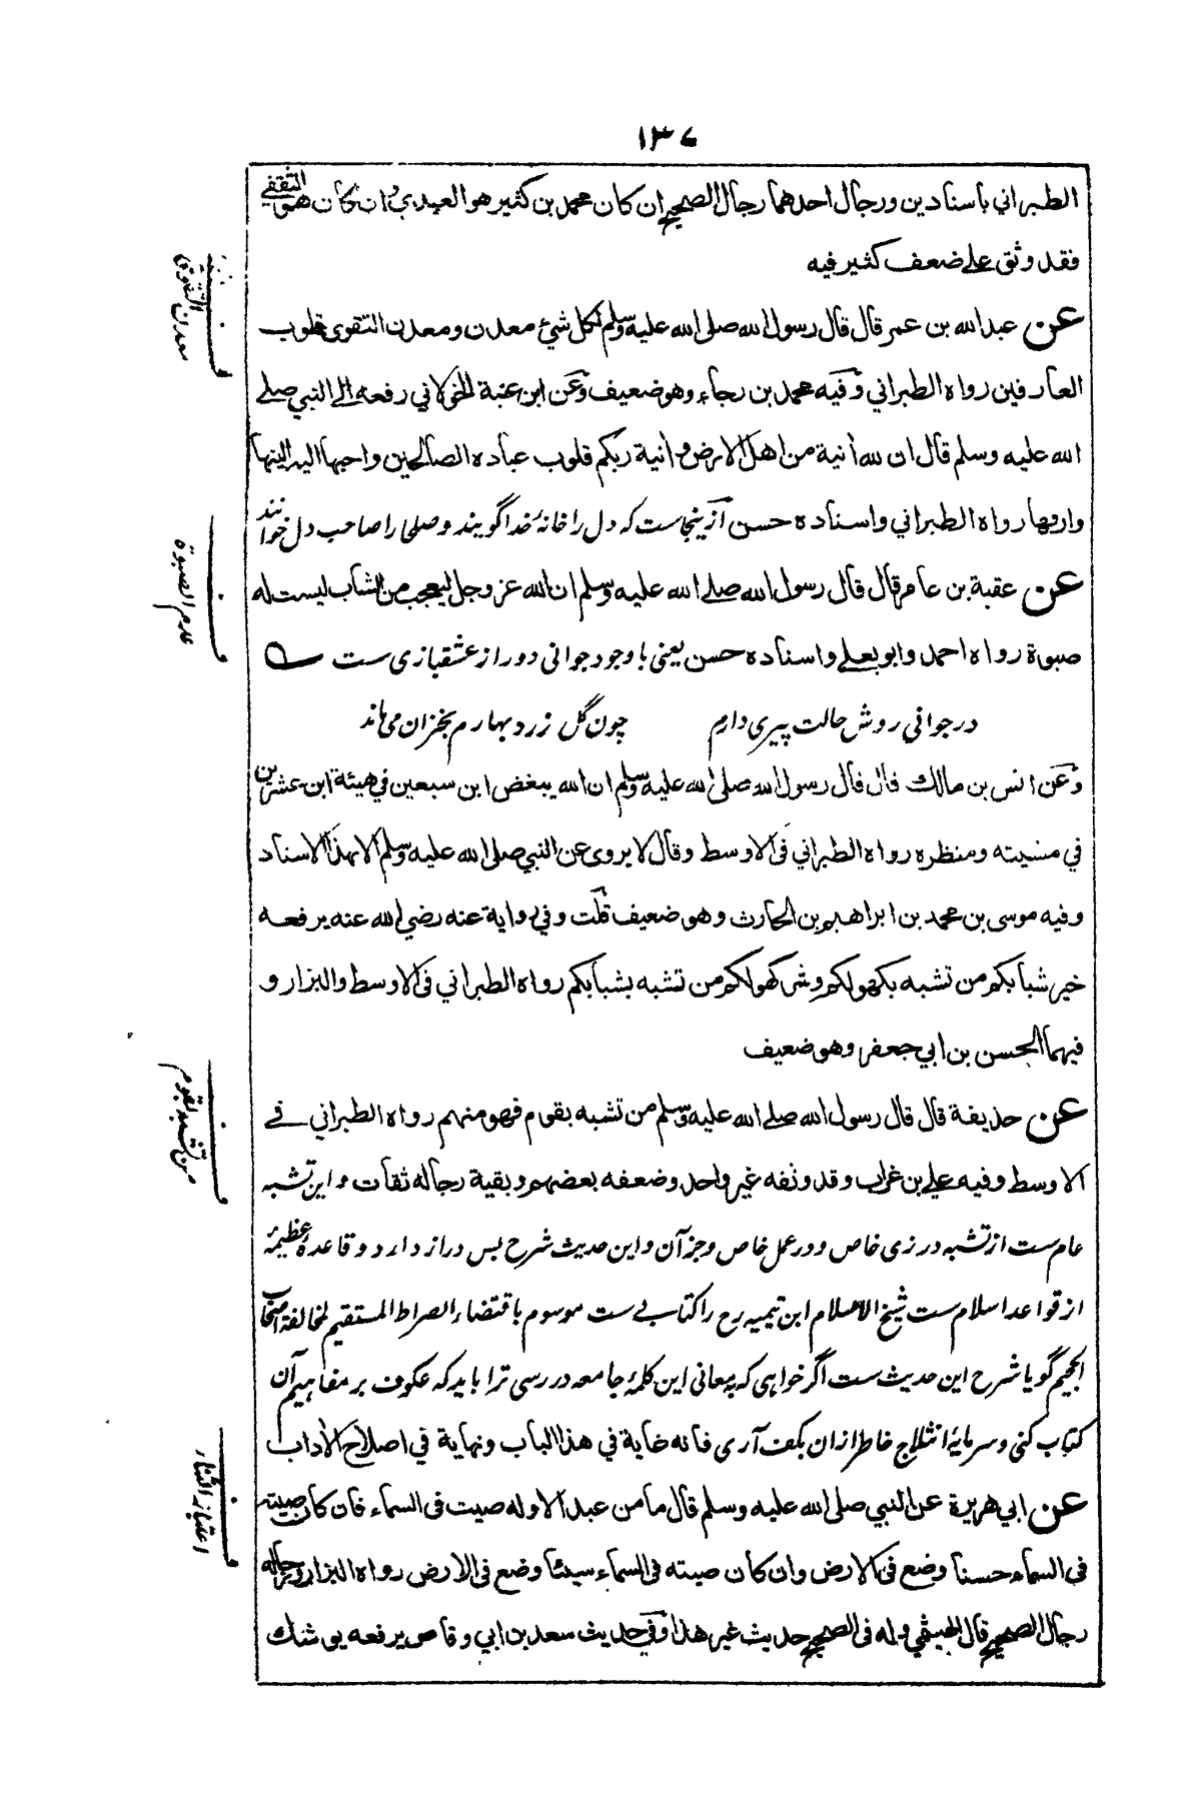 ١٣٧
الطبراني باسنادين ورجال احدهما رجال الصحيح ان كان محمد بن كثير هو العبدي وان كان هو الثقفي
فقد وثق على ضعف كثير فيه
عن عبد الله بن عمر قال قال رسول الله صلى الله عليه وسلم لكل شئ معدن ومعدن التقوى قلوب
العارفين رواه الطبراني وفيه محمد بن رجاء وهو ضعيف وعن ابن عنبة الخولاني رفعه الى النبي صلى
الله عليه وسلم قال ان لله أنية من اهل الارض وأنية ربكم قلوب عباده الصالحين واحبها اليه الينها
وارقها رواه الطبراني واسناده حسن ازينجاست كه دل را خانهٔ خدا گویند وصلحا را صاحب دل خوانند
عن عقبة بن عامر قال قال رسول الله صلى الله عليه وسلم ان الله عز وجل ليعجب من الشاب ليست له
صبوة رواه احمد وابو يعلى واسناده حسن يعنى با وجود جوانی دور از عشقبازی ست
در جوانی روش حالت پیری دارم چون گل زرد بهارم بخزان می ماند
وعن انس بن مالك قال قال رسول الله صلى الله عليه وسلم ان الله يبغض ابن سبعين في هيئة ابن عشرين
في مشيته ومنظره رواه الطبراني فى الاوسط وقال لا يروى عن النبي صلى الله عليه وسلم الا بهذا الاسناد
وفيه موسى بن محمد بن ابراهيم بن الحارث وهو ضعيف قلت وفي رواية عنه رضي الله عنه يرفعه
خير شبابكم من تشبه بكهولكم وشر كهولكم من تشبه بشبابكم رواه الطبراني فى الاوسط والبزار و
فيهما الحسن بن ابي جعفر وهو ضعيف
عن حذيفة قال قال رسول الله صلى الله عليه وسلم من تشبه بقوم فهو منهم رواه الطبراني في
الاوسط وفيه علي بن غراب وقد وثقه غير واحد وضعفه بعضهم وبقية رجاله ثقات واین تشبه
عام ست از تشبه در زی خاص و در عمل خاص وجز آن واین حدیث شرح بس دراز دارد وقاعدهٔ عظیمهٔ
از قواعد اسلام ست شیخ الاسلام ابن تیمیه رح را کتابی ست موسوم باقتضاء الصراط المستقیم لمخالفة اصحاب
الجحیم گویا شرح این حدیث ست اگر خواهی که بمعانی این کلمهٔ جامعه در رسی ترا باید که عکوف بر مفاهیم آن
کتاب کنی وسرمایهٔ انثلاج خاطر ازان بکف آری فانه غاية في هذا الباب ونهاية في اصلاح الاداب
عن ابي هريرة عن النبي صلى الله عليه وسلم قال ما من عبد الا وله صيت فى السماء فان كان صيته
فى السماء حسنا وضع فى الارض وان كان صيته فى السماء سيئا وضع فى الارض رواه البزار ورجاله
رجال الصحيح قال الهيثمي وله فى الصحيح حديث غير هذا وفي حديث سعد بن ابي وقاص يرفعه يوشك
معدن التقوى
عادم الصبوة
من تشبه بقوم
اعتبار الثناء